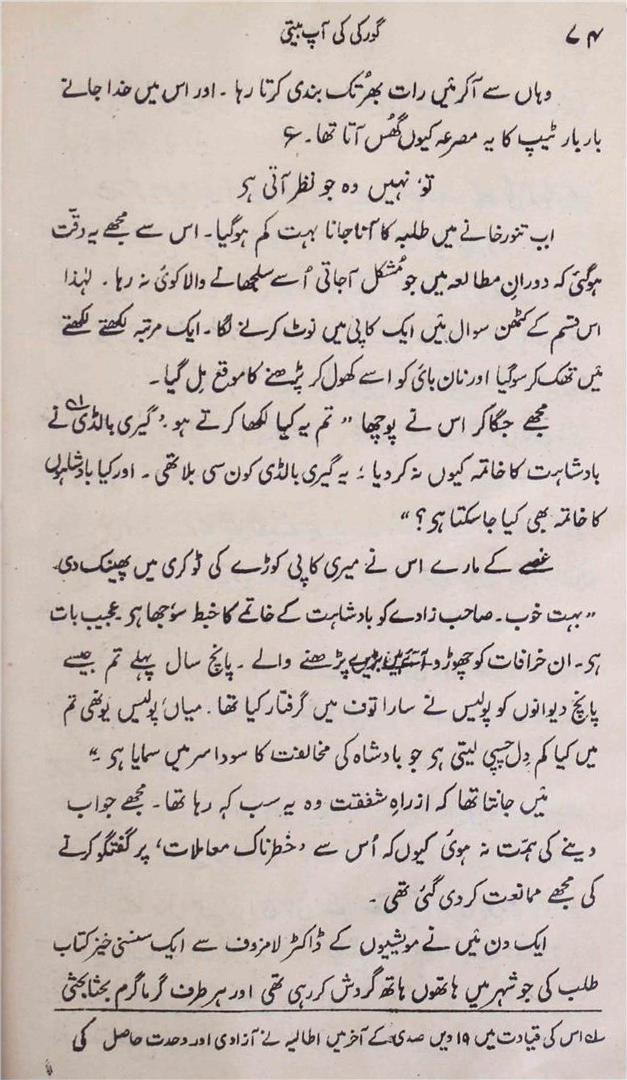 ۷۴ گورکی کی آپ بیتی
وہاں سے آکر مَیں رات بھر تُک بندی کرتا رہا ۔ اور اس میں خدا جانے
بار بار ٹیپ کا یہ مصرعہ کیوں گھُس آتا تھا۔ ع
تو نہیں وہ جو نظر آتی ہی
اب تنور خانے میں طلبہ کا آنا جانا بہت کم ہوگیا۔ اس سے مجھے یہ دقّت
ہوگئی کہ دورانِ مطالعہ میں جو مُشکل آجاتی اُسے سلجھانے والا کوئی نہ رہا ۔ لہٰذا
اس قسم کے کٹھن سوال مَیں ایک کاپی میں نوٹ کرنے لگا۔ ایک مرتبہ لکھتے لکھتے
مَیں تھک کر سوگیا اور نان بائی کو اسے کھول کر پڑھنے کا موقع مِل گیا ۔
مجھے جگاکر اس نے پوچھا ” تم یہ کیا لکھا کرتے ہو ۔ ’گیری بالڈی لہ نے
بادشاہت کا خاتمہ کیوں نہ کر دیا ؛ یہ گیری بالڈی کون سی بلا تھی ۔ اور کیا بادشاہوں
کا خاتمہ بھی کیا جاسکتا ہی ؟ “
غصے کے مارے اس نے میری کاپی کوڑے کی ٹوکری میں پھینک دی۔
” بہت خوب ۔ صاحب زادے کو بادشاہت کے خاتمے کا خبط سوجھا ہی ۔ عجیب بات
ہی ۔ ان خرافات کو چھوڑ دو۔ آئے ہیں بڑے پڑھنے والے ۔ پانچ سال پہلے تم جیسے
پانچ دیوانوں کو پولیس نے سارا توف میں گرفتار کیا تھا ۔ میاں‘ پولیس یوُنھی تم
میں کیا کم دِل چسپی لیتی ہی جو بادشاہ کی مخالفت کا سودا سر میں سمایا ہی ۔“
مَیں جانتا تھا کہ ازراہِ شفقت وہ یہ سب کہ رہا تھا ۔ مجھے جواب
دینے کی ہمّت نہ ہوئی کیوں کہ اُس سے ’خطرناک معاملات‘ پر گفتگو کرنے
کی مجھے ممانعت کر دی گئی تھی ۔
ایک دن مَیں نے مویشیوں کے ڈاکٹر لامزوف سے ایک سنسنی خیز کتاب
طلب کی جو شہر میں ہاتھوں ہاتھ گردش کر رہی تھی اور ہر طرف گرماگرم بحثا بحثی
لہ اس کی قیادت میں ۱۹ ویں صدی کے آخر میں اطالیہ نے آزادی اور وحدت حاصل کی